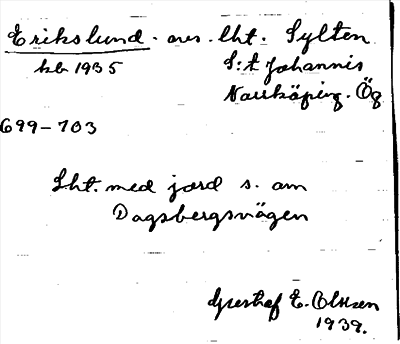 Erikslund. avs. lht. Sylten
kb 1935 S:t Johannis
Norrköping. Ög
699-703
Lht. med jord s. om
Dagsbergsvägen
Gusthaf E. Olsson
1939.